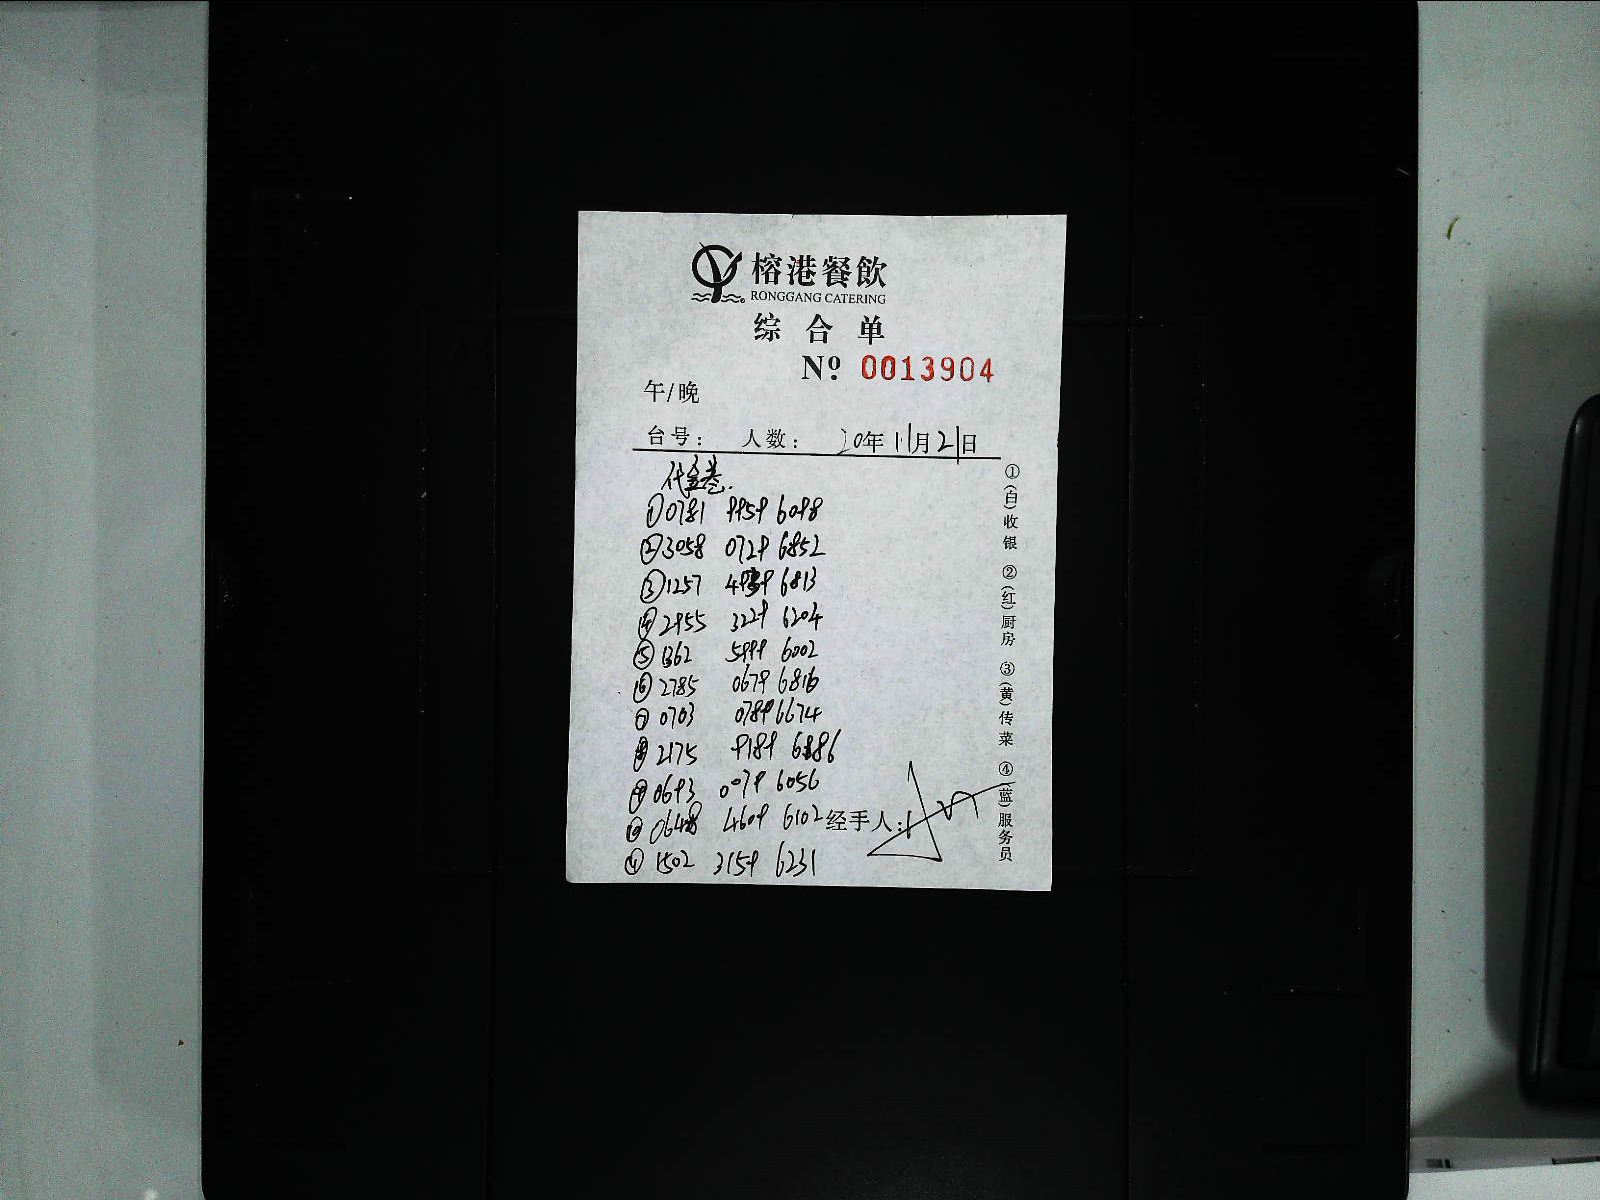 榕港餐飲
RONGGANG CATERING
综合单
Nº 0013904
午/晚
台号： 人数： 20年11月21日
代金卷.
①0781 9959 6098
②3058 0729 6852
③1257 4939 6813
④2955 3229 6204
⑤1362 5999 6002
⑥2785 0679 6816
⑦0703 0789 6674
⑧2175 9189 6886
⑨0693 0079 6056
⑩0648 4609 6102
经手人:
⑪1502 3159 6231
①(白)收银 ②(红)厨房 ③(黄)传菜 ④(蓝)服务员